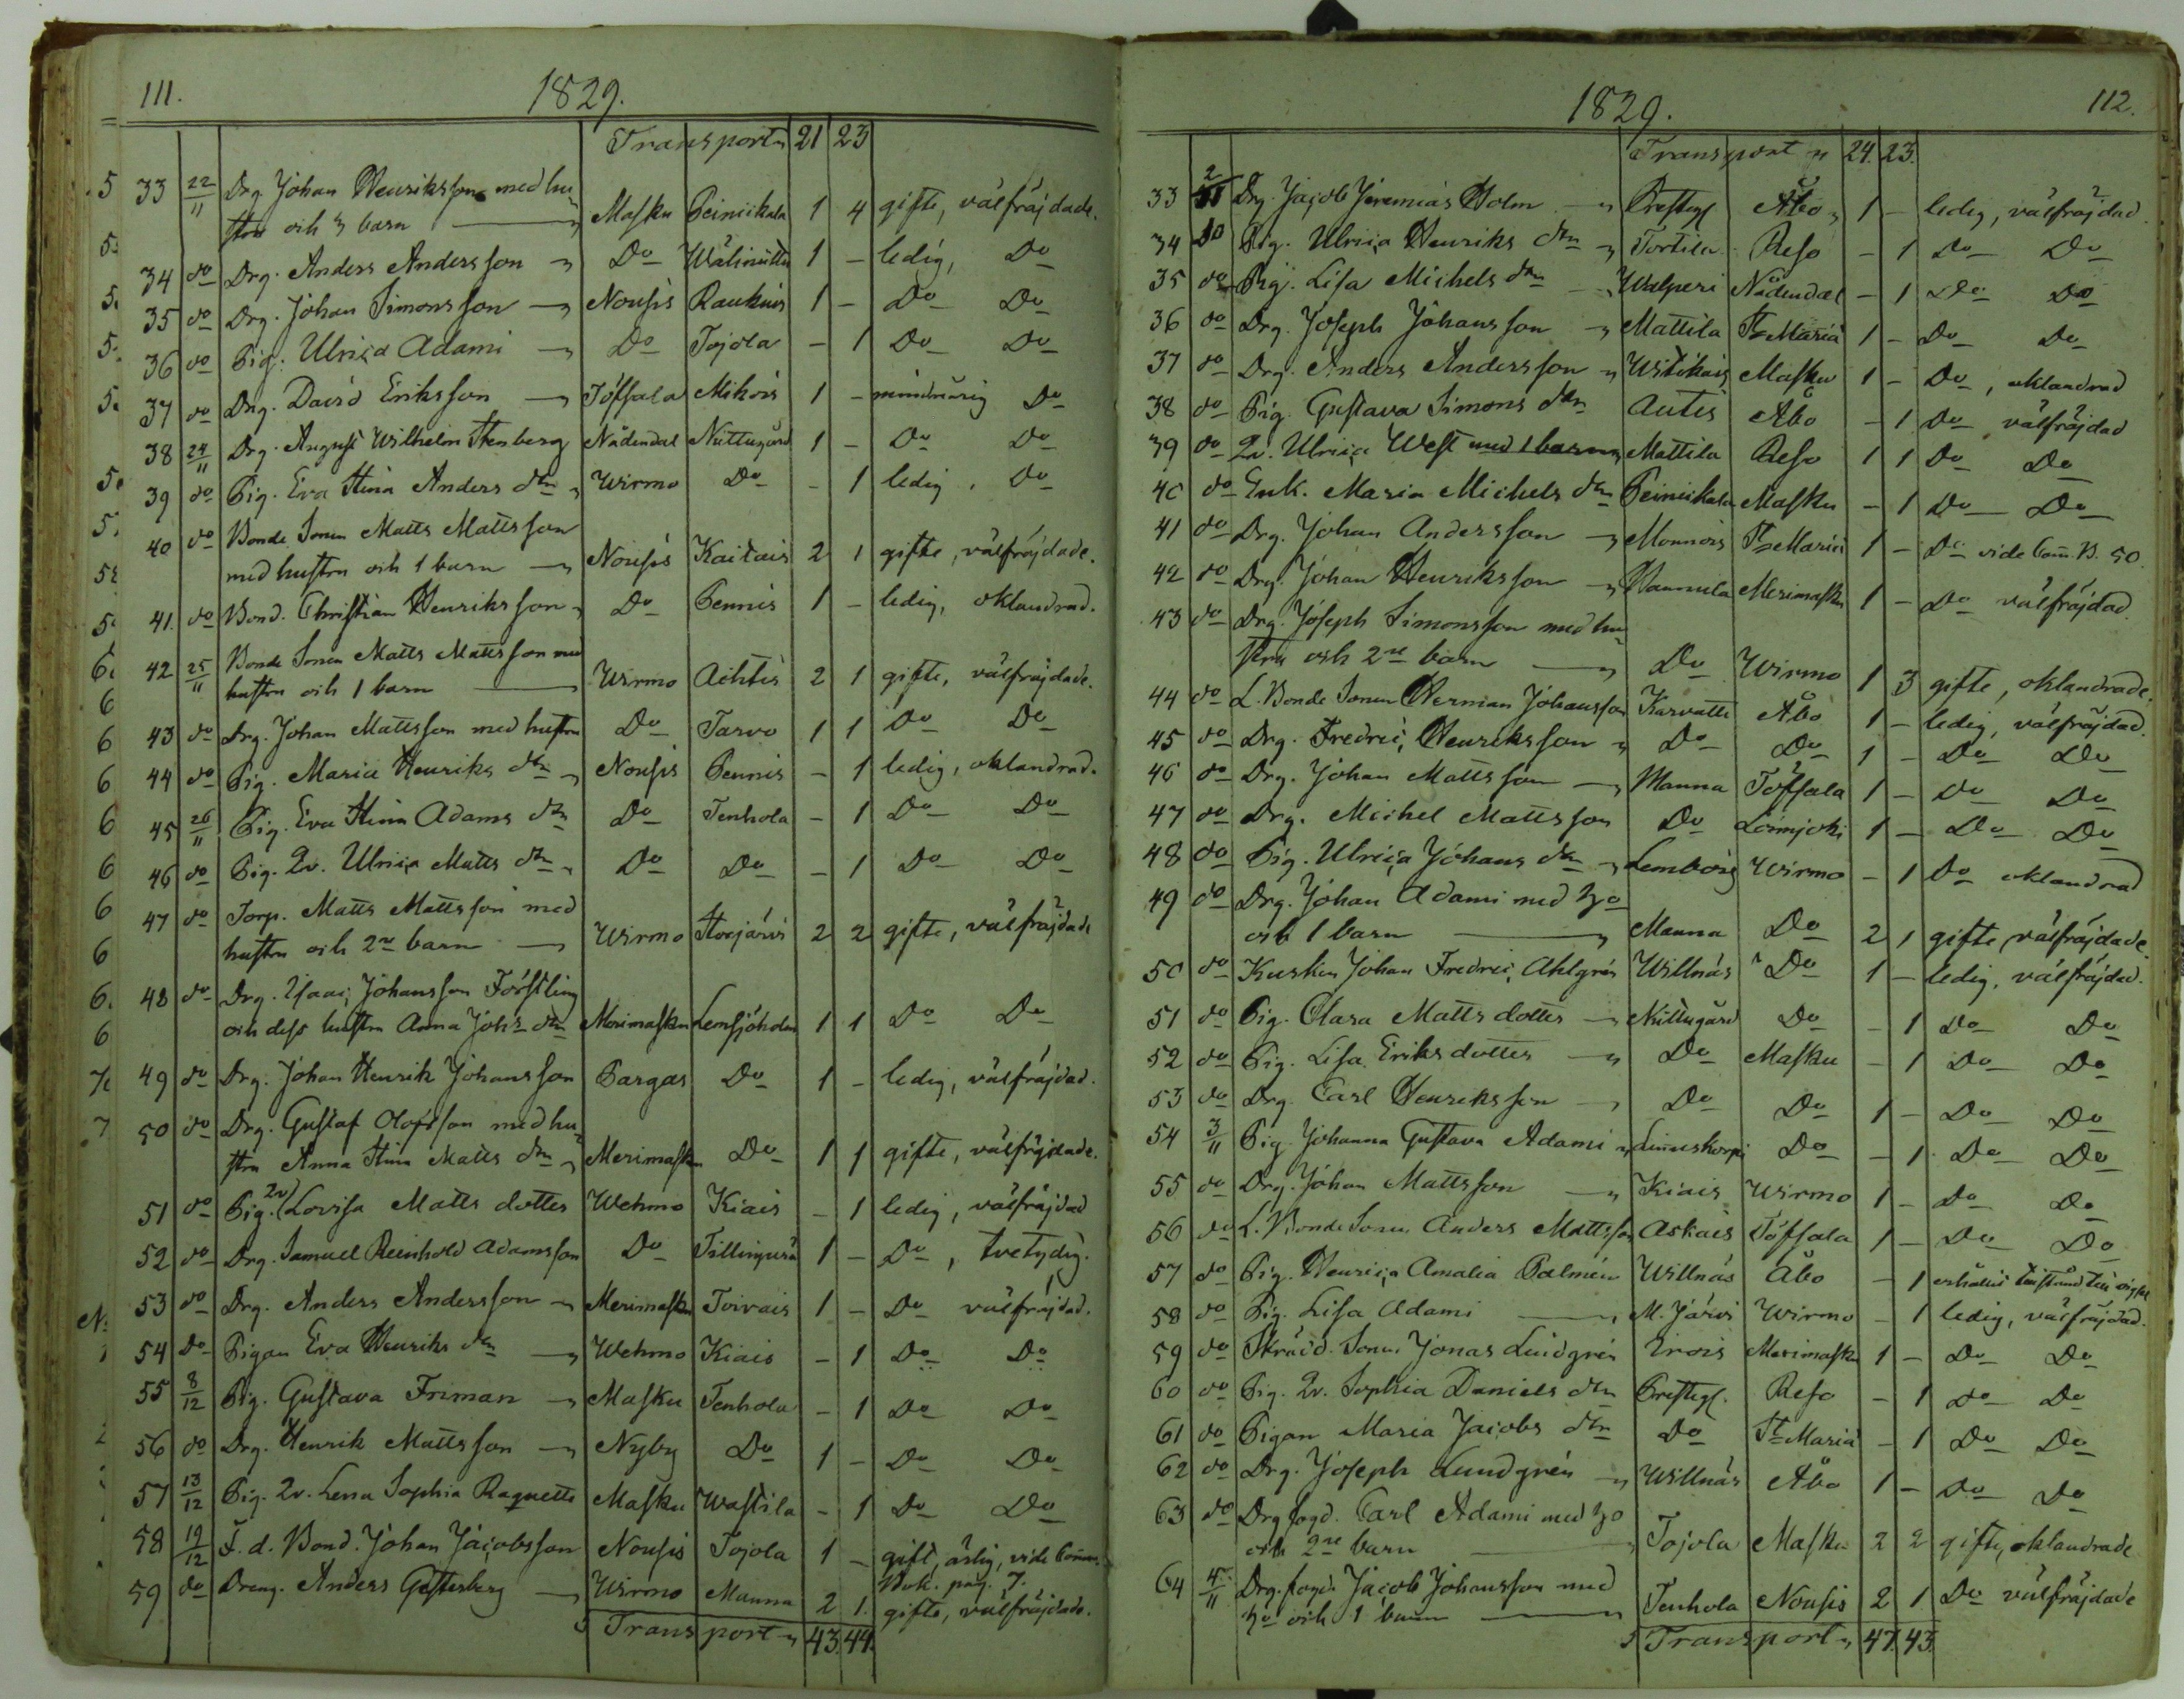 111.
1829.
Transport 21 23
33 22/11 Drg. Johan Henriksson med hu
stru och 3 barn Masku Peiniikala 1 4 gifte, välfräjdade.
34 do Drg. Anders Andersson Do 1 - ledig, Do
35 do Drg. Johan Simonsson Nousis Raukais 1 - Do Do
36 do Pig. Ulrica Adami Do Tojola - 1 Do Do
37 do Drg. David Eriksson Töfsala Mikois 1 - minderårig Do
38 24/11 Drg. August Wilhelm Stenberg Nådendal Nuttugård 1 - Do Do
39 do Pig. Eva Stina Anders dtr Wirmo Do - 1 ledig, Do
40 do Bonde Sonen Matts Mattsson
med hustru och 1 barn Nousis Kaitais 2 1 gifte, välfräjdade.
41. do Bond. Christian Henriksson Do Pennis 1 - ledig, oklandrad.
42 25/11 Bonde Sonen Matts Mattsson med
hustru och 1 barn Wirmo Achtis 2 1 gifte, välfräjdade.
43 do Drg. Johan Mattsson med hustru Do Tarvo 1 1 Do Do
44 do Pig. Maria Henriks dtr Nousis Pennis - 1 ledig, oklandrad.
45 26/11 Pig. Eva Stina Adams dtr Do Tenhola - 1 Do Do
46 do Pig. Qv. Ulrica Matts dtr Do Do - 1 Do Do
47 do Torp. Matts Mattsson med
hustru och 2ne barn Wirmo 2 2 gifte, välfräjdade
48 do Drg. Isaac Johansson Förstling
och dess hustru Anna Johs dtr Merimasku Lemsjöholm 1 1 Do Do
49 do Drg. Johan Henrik Johansson Pargas Do 1 - ledig, välfräjdad.
50 do Drg. Gustaf Olofsson med hu
stru Anna Stina Matts dtr Merimasku Do 1 1 gifte, välfräjdade.
51 do Pig. (Qv) Lovisa Matts dotter Wehmo Kiais - 1 ledig, välfräjdad
52 do Drg. Samuel Reinhold Adamsson Do 1 - Do, tvetydig.
53 do Drg. Anders Andersson Merimasku Toivais 1 - Do välfräjdad.
54 Do Pigan Eva Henriks dtr Wehmo Kiais - 1 Do Do
55 8/12 Pig. Gustava Friman Masku Tenhola - 1 Do Do
56 do Drg. Henrik Mattsson Nyby Do 1 - Do Do
57 13/12 Pig. Qv. Lena Sophia Raquette Masku Wastila - 1 Do Do
58 19/12 F. d. Bond. Johan Jacobsson Nousis Tojola 1 - gift, ärlig, vide Comm.
Bok. pag. 7.
59 do Dreng. Anders Gesterberg Wirmo Manna 2 1. gifte, välfräjdade.
Transport 43. 44.
112.
1829.
Transport 24. 23.
33 2/11 Drg. Jacob Jeremias Holm Prestegl Åbo 1 - ledig, välfräjdad.
34 do Pig. Ulrica Henriks dtr Tortila Reso - 1 Do Do
35 do Pig. Lisa Michels dtr Walperi Nådendal - 1 Do Do
36 do Drg. Joseph Johansson Mattila St Maria 1 - Do Do
37 do Drg. Anders Andersson Witikais Masku 1 - Do, oklandrad
38 do Pig. Gustava Simons dtr Autis Åbo - 1 Do välfräjdad
39 do Qv. Ulrica West med 1 barn Mattila Reso 1 1 Do Do
40 do Enk. Maria Michels dtr Peiniikala Masku - 1 Do Do
41 do Drg. Johan Andersson Monnois St Maria 1 - Do vide Com. B. 50.
42 do Drg. Johan Henriksson Hannula Merimasku 1 - Do välfräjdad
43 do Drg. Joseph Simonsson med hu
stru och 2ne barn Do Wirmo 1 3 gifte, oklandrade.
44 do L. Bonde Sonen Herman Johansson Karvatti Åbo 1 - ledig, välfräjdad.
45 do Drg. Fredric Henriksson Do Do 1 - Do Do
46 do Drg. Johan Mattsson Manna Töfsala 1 - Do Do
47 do Drg. Michel Mattsson Do Loimjoki 1 - Do Do
48 do Pig. Ulrica Johans dtr Lembois Wirmo - 1 Do oklandrad
49 do Drg. Johan Adami med
och 1 barn Manna Do 2 1 gifte, välfräjdade.
50 do Kusken Johan Fredric Ahlgrén Willnäs Do 1 - ledig, välfräjdad.
51 do Pig. Clara Matts dotter Nuttugård Do - 1 Do Do
52 do Pig. Lisa Eriks dotter Do Masku - 1 Do Do
53 do Drg. Carl Henriksson Do Do 1 - Do Do
54 3/11 Pig. Johanna Gustava Adami Linuskorpi Do - 1 Do Do
55 do Drg. Johan Mattsson Kiais Wirmo 1 - Do Do
56 do L. Bonde Sonen Anders Mattsson Askais Töfsala 1 - Do Do
57 do Pig. Henrica Amalia Palmén Willnäs Åbo - 1
58 do Pig. Lisa Adami M. Järvi Wirmo - 1 ledig, välfräjdad.
59 do Skrädd. Sonen Jonas Lindgrén Erois Merimasku 1 - Do Do
60 do Pig. Qv. Sophia Daniels dtr Prestegl. Reso - 1 do Do
61 do Pigan Maria Jacobs dtr Do St Maria - 1 Do Do
62 do Drg. Joseph Lundgrén Willnäs Åbo 1 - Do Do
63 do Drg fogd. Carl Adami med
och 2ne barn Tojola Masku 2 2 gifte, oklandrade
64 4/11 Drg. fogd. Jacob Johansson med
och 1 barn Tenhola Nousis 2 1 Do välfräjdade
Transport 47. 43.